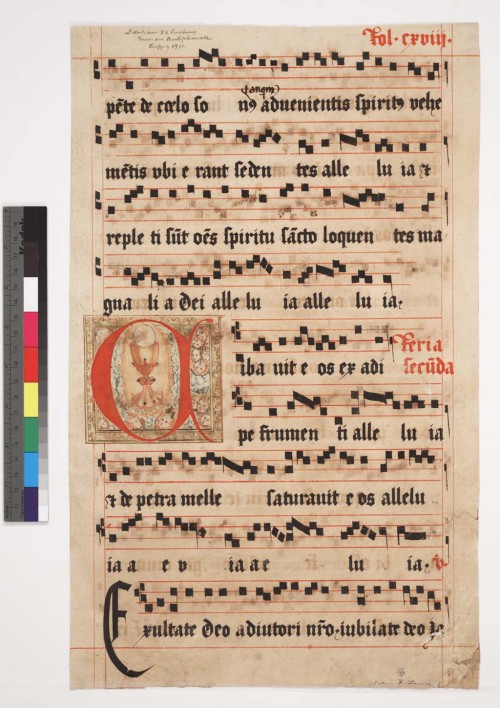 Fol. cxviij.
tanqm̄
pēte de cœlo so nꝰ aduenientis spiritꝰ vehe
mētis vbi e rant seden tes alle lu ia ⁊
reple ti sūt oēs spiritu sācto loquen tes ma
gna li a dei alle lu ia alle lu ia.
Feria
iba uit e os ex adi
secūda
C
pe frumen ti alle lu ia
⁊ de petra melle saturauit e os allelu
ia a e v ia a e lu ia. v.
Exultate deo adiutori nr̄o iubilate deo Ja